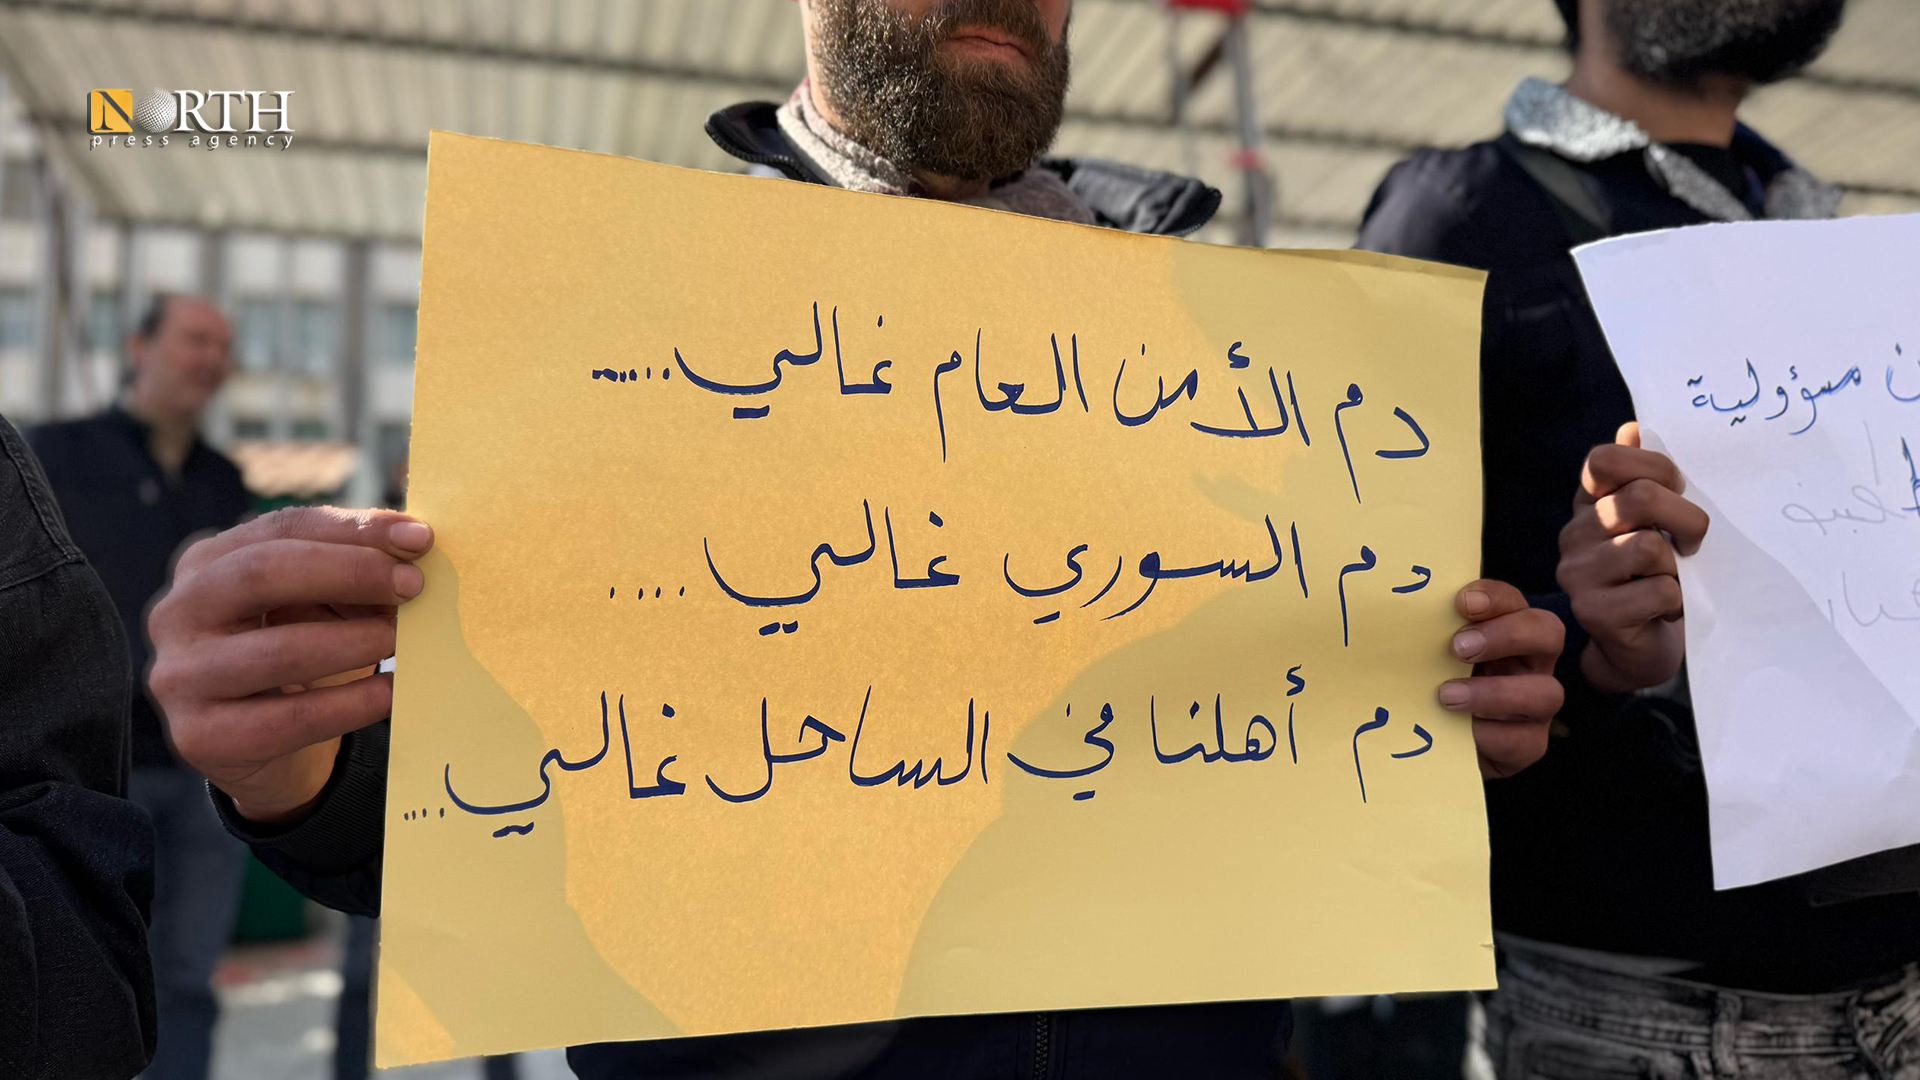 NORTH
press agency
دم الأمن العام غالي.......
دم السوري غالي....
دم أهلنا في الساحل غالي....
مسؤولية